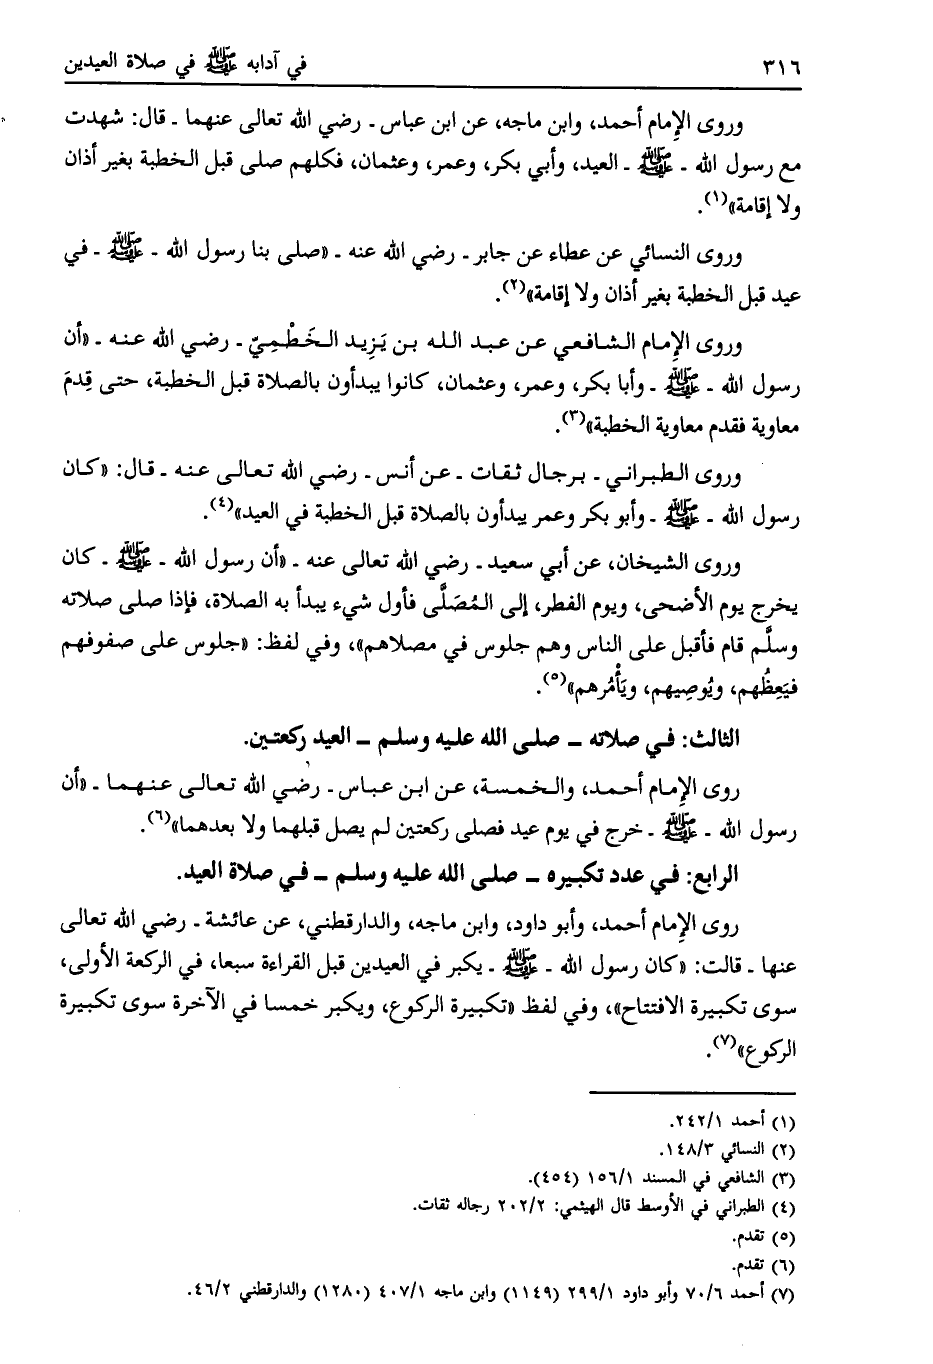 ٣١٦ في آدابه ﷺ في صلاة العيدين
وروى الإمام أحمد، وابن ماجه، عن ابن عباس ـ رضي الله تعالى عنهما ـ قال: شهدت
مع رسول الله ـ ﷺ ـ العيد، وأبي بكر، وعمر، وعثمان، فكلهم صلى قبل الخطبة بغير أذان
ولا إقامة»(١).
وروى النسائي عن عطاء عن جابر ـ رضي الله عنه ـ «صلى بنا رسول الله ـ ﷺ ـ في
عيد قبل الخطبة بغير أذان ولا إقامة»(٢).
وروى الإمام الشافعي عن عبد الله بن يَزِيد الخَطْمِيّ ـ رضي الله عنه ـ «أن
رسول الله ـ ﷺ ـ وأبا بكر، وعمر، وعثمان، كانوا يبدأون بالصلاة قبل الخطبة، حتى قِدمَ
معاوية فقدم معاوية الخطبة»(٣).
وروى الطبراني ـ برجال ثقات ـ عن أنس ـ رضي الله تعالى عنه ـ قال: «كان
رسول الله ـ ﷺ ـ وأبو بكر وعمر يبدأون بالصلاة قبل الخطبة في العيد»(٤).
وروى الشيخان، عن أبي سعيد ـ رضي الله تعالى عنه ـ «أن رسول الله ـ ﷺ ـ كان
يخرج يوم الأضحى، ويوم الفطر، إلى المُصَلَّى فأول شيء يبدأ به الصلاة، فإذا صلى صلاته
وسلَّم قام فأقبل على الناس وهم جلوس في مصلاهم»، وفي لفظ: «جلوس على صفوفهم
فيَعِظُهم، ويُوصِيهم، ويَأْمُرهم»(٥).
الثالث: في صلاته ـ صلى الله عليه وسلم ـ العيد ركعتين.
روى الإمام أحمد، والخمسة، عن ابن عباس ـ رضي الله تعالى عنهما ـ «أن
رسول الله ـ ﷺ ـ خرج في يوم عيد فصلى ركعتين لم يصل قبلهما ولا بعدهما»(٦).
الرابع: في عدد تكبيره ـ صلى الله عليه وسلم ـ في صلاة العيد.
روى الإمام أحمد، وأبو داود، وابن ماجه، والدارقطني، عن عائشة ـ رضي الله تعالى
عنها ـ قالت: «كان رسول الله ـ ﷺ ـ يكبر في العيدين قبل القراءة سبعا، في الركعة الأولى،
سوى تكبيرة الافتتاح»، وفي لفظ «تكبيرة الركوع، ويكبر خمسا في الآخرة سوى تكبيرة
الركوع»(٧).
(١) أحمد ٢٤٢/١.
(٢) النسائي ١٤٨/٣.
(٣) الشافعي في المسند ١٥٦/١ (٤٥٤).
(٤) الطبراني في الأوسط قال الهيثمي: ٢٠٢/٢ رجاله ثقات.
(٥) تقدم.
(٦) تقدم.
(٧) أحمد ٧٠/٦ وأبو داود ٢٩٩/١ (١١٤٩) وابن ماجه ٤٠٧/١ (١٢٨٠) والدارقطني ٤٦/٢.